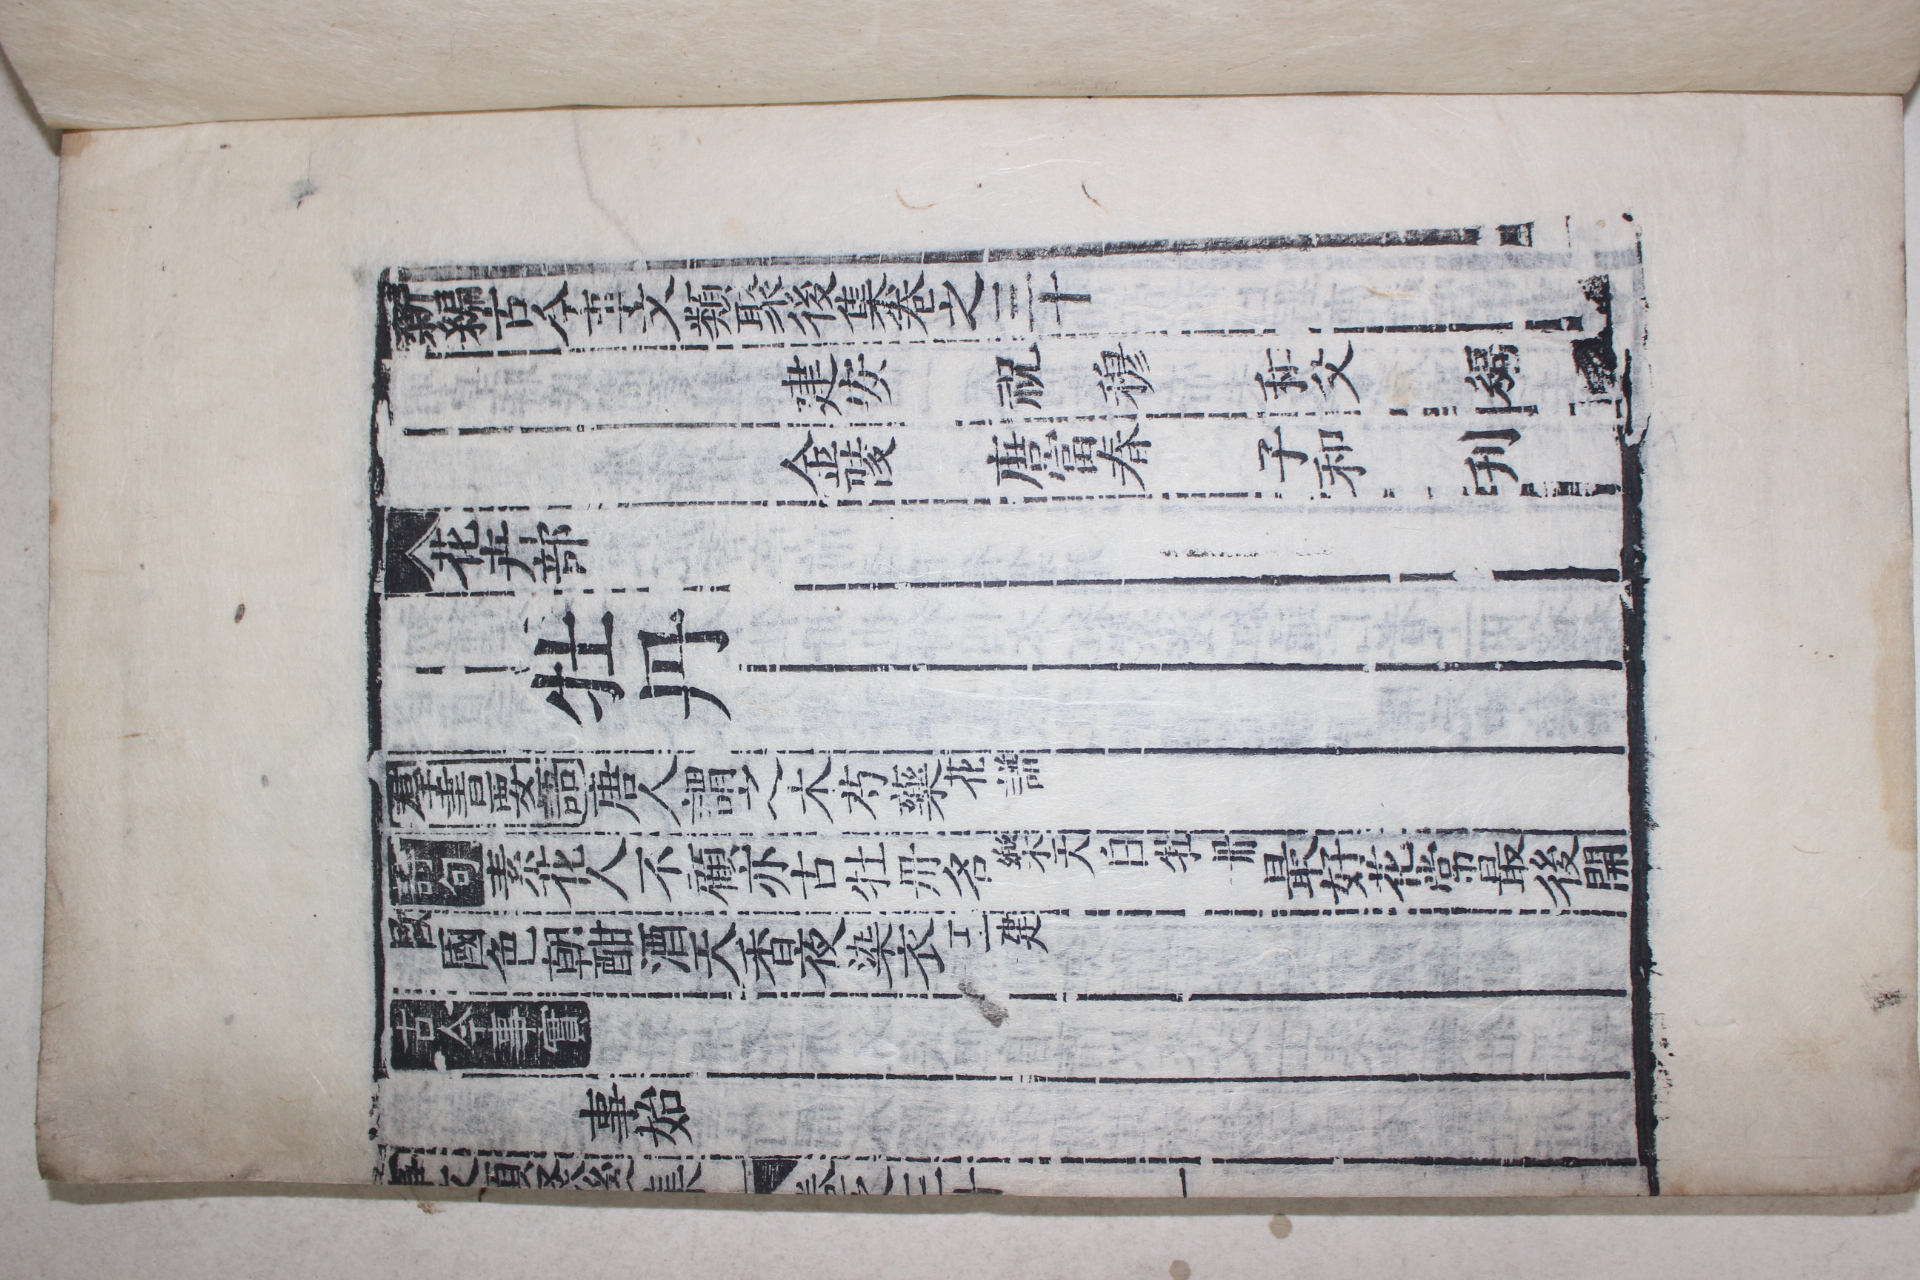 新編古今事文類聚後集卷之三十
建安 祝 穆 和父 編
金陵 唐富春 子和 刋
花卉部
牡丹
羣書要語唐人謂之木芍藥花譜
詩句素花人不顧亦占牡丹名樂天白牡丹最好花常最後開
歐國色朝酣酒天香夜染衣王建
古今事實
事始
事文類聚後集 卷之三十 一